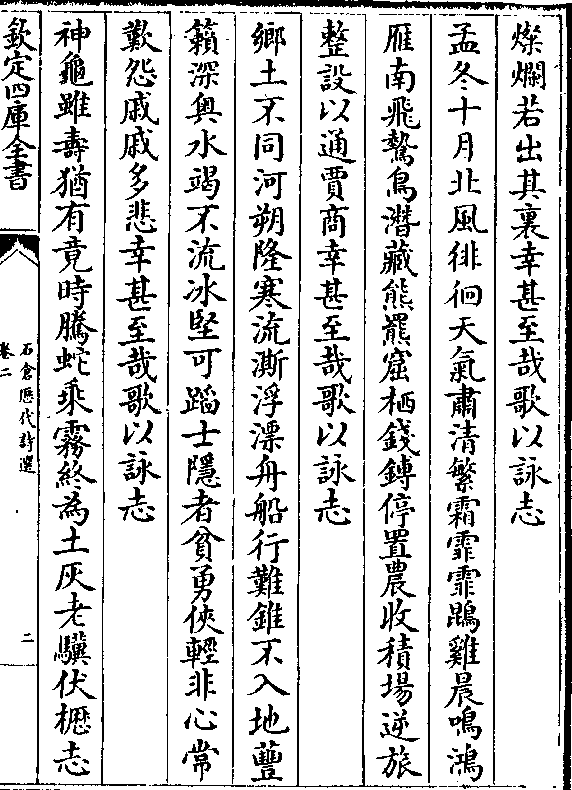 燦爛若出其裏幸甚至哉歌以詠志
孟冬十月北風徘徊天氣肅清繁霜霏霏鵾雞晨鳴鴻
雁南飛鷙鳥潛藏熊羆窟栖錢鎛停置農收積場逆旅
整設以通賈商幸甚至哉歌以詠志
鄉土不同河朔隆寒流澌浮漂舟船行難錐不入地蘴
籟深奥水竭不流冰堅可蹈士隱者貧勇俠輕非心常
歎怨戚戚多悲幸甚至哉歌以詠志
神龜雖壽猶有竟時騰蛇乘霧終為土灰老驥伏櫪志
欽定四庫全書
石倉歷代詩選
卷二
二